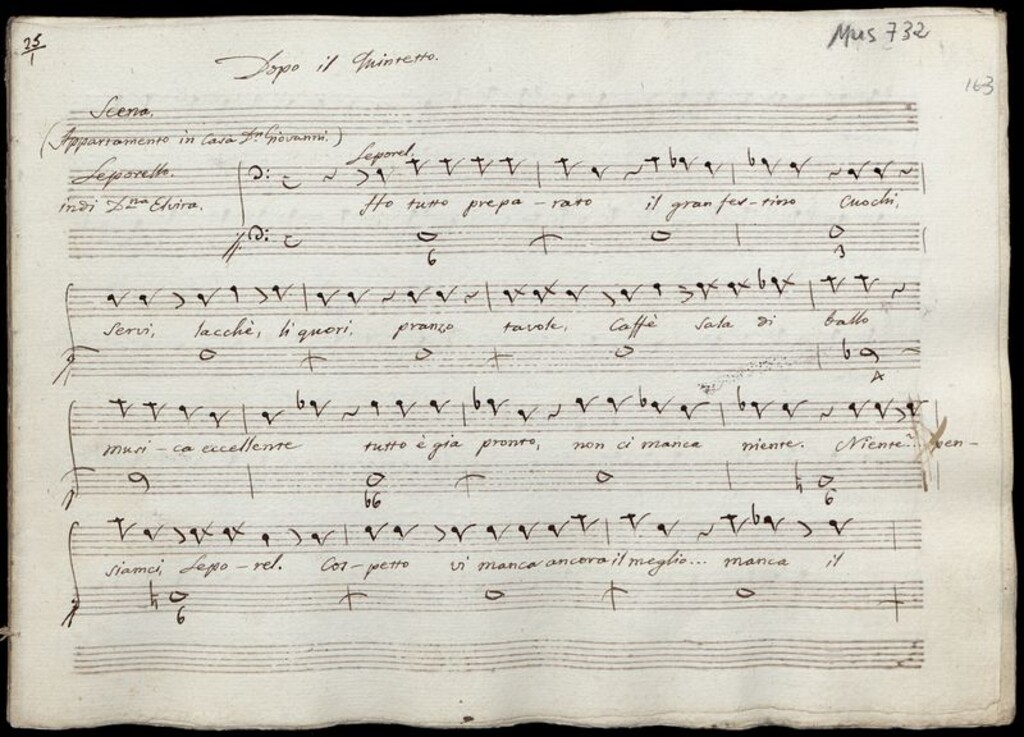 25/1
Dopo il Quintetto.
Mus 732
163
Scena.
(Appartamento in casa Dn Giovanni.)
Leporello.
indi Dna Elvira.
Leporel.
Ho tutto prepa-rato il gran fes-tino Cuochi,
6 3
servi, lacchè, liquori, pranzo tavole, Caffè sala di ballo
4
musi-ca eccellente tutto è già pronto, non ci manca niente. Niente?.. pen-
b6 6
siamci, Lepo-rel. Cos-petto vi manca ancora il meglio... manca il
6